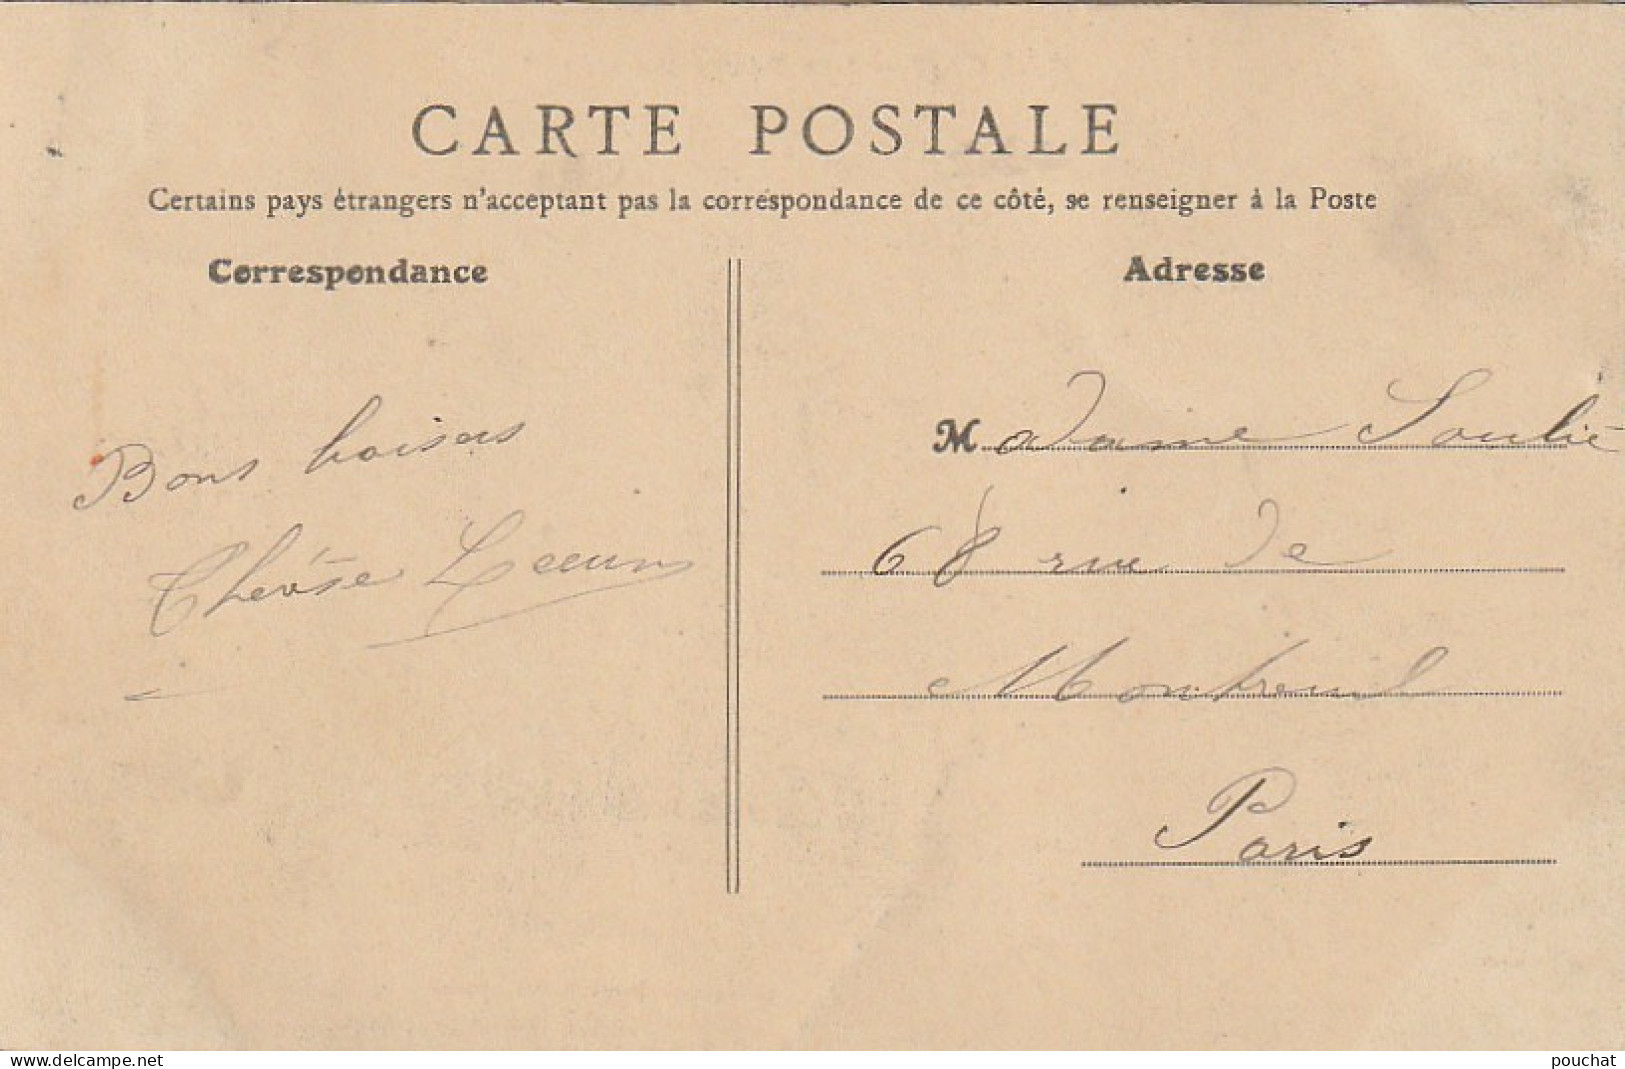 CARTE POSTALE
Certains pays étrangers n'acceptant pas la correspondance de ce côté, se renseigner à la Poste
Correspondance
Bons baisers
Thérèse
Adresse
Madame Soulié
68 rue de
Montreuil
Paris
www.delcampe.net
pouchat